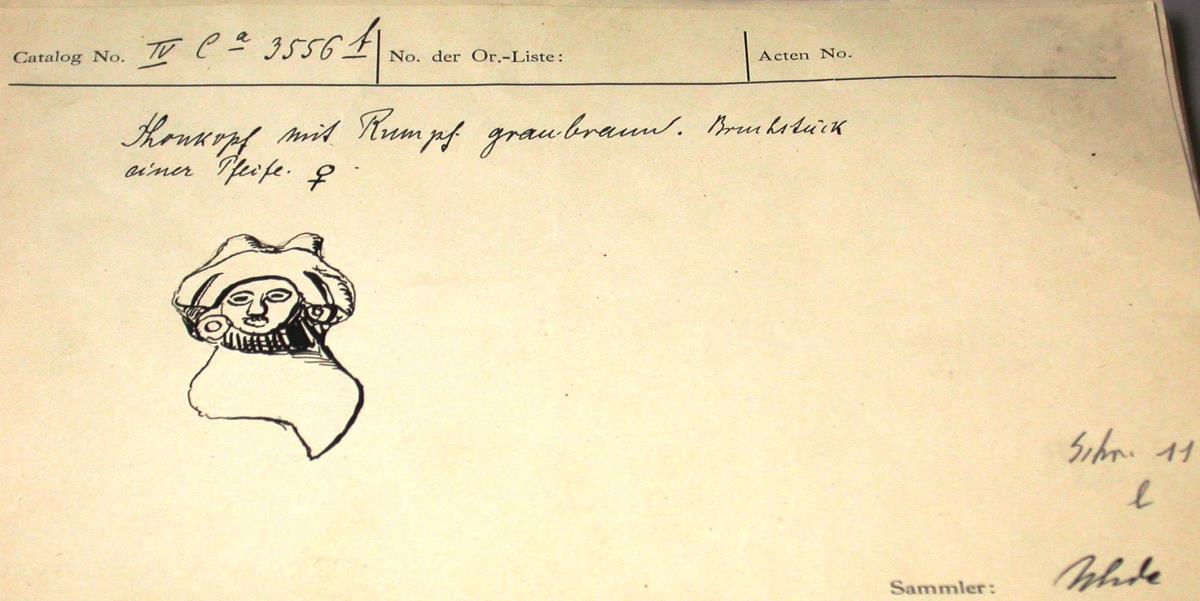 Catalog No. IV Ca 3556 f No. der Or.-Liste: Acten No.
Thonkopf mit Rumpf. graubraun. Bruchstück
einer Pfeife. ♀
Schr. 11
l
Sammler: Uhde